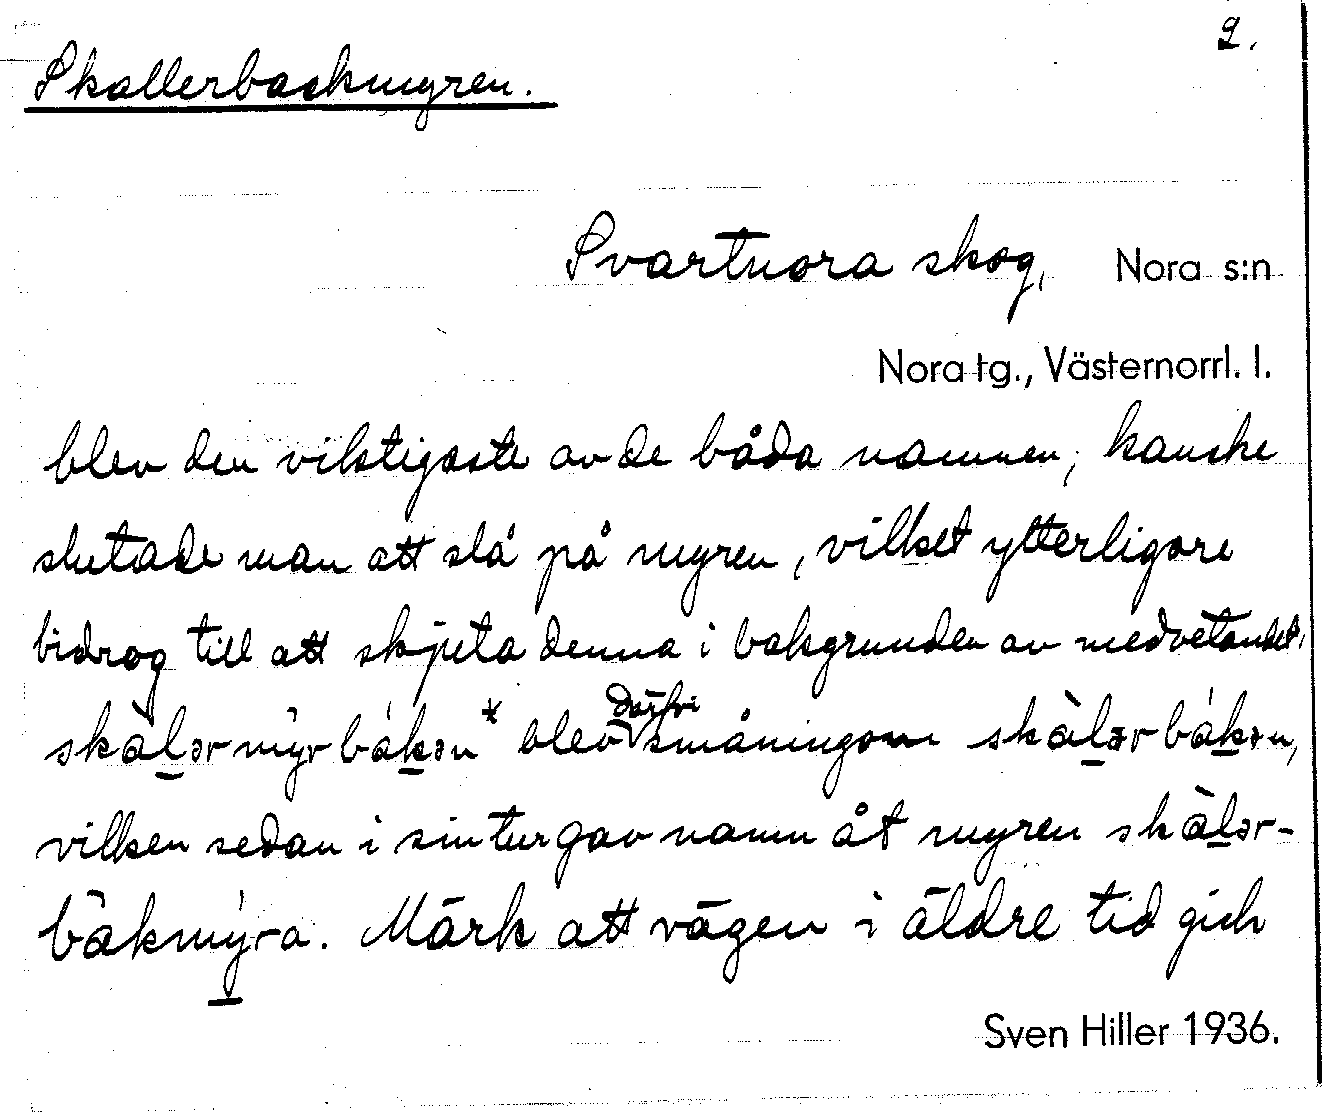 2.
Skallerbackmyren.
Svartnora skog, Nora s:n
Nora tg., Västernorrl. l.
blev den viktigaste av de båda namnen, kanske
slutade man att slå på myren, vilket ytterligare
bidrog till att skjuta denna i bakgrunden av medvetandet,
skàlərmy̓rbákən* blev därför småningom skàlərbákən,
vilken sedan i sin tur gav namn åt myren skàlər-
bàkmy̓ra. Märk att vägen i äldre tid gick
Sven Hiller 1936.